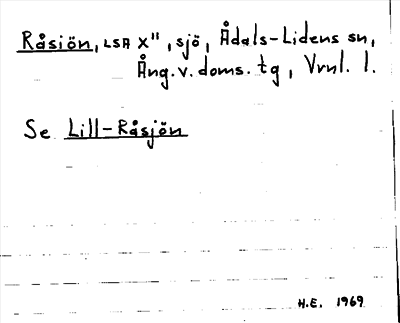 Råsiön, LSA X", sjö, Ådals-Lidens sn,
Ång. v. doms. tg, Vrnl. l.
Se Lill-Råsjön
H.E. 1969